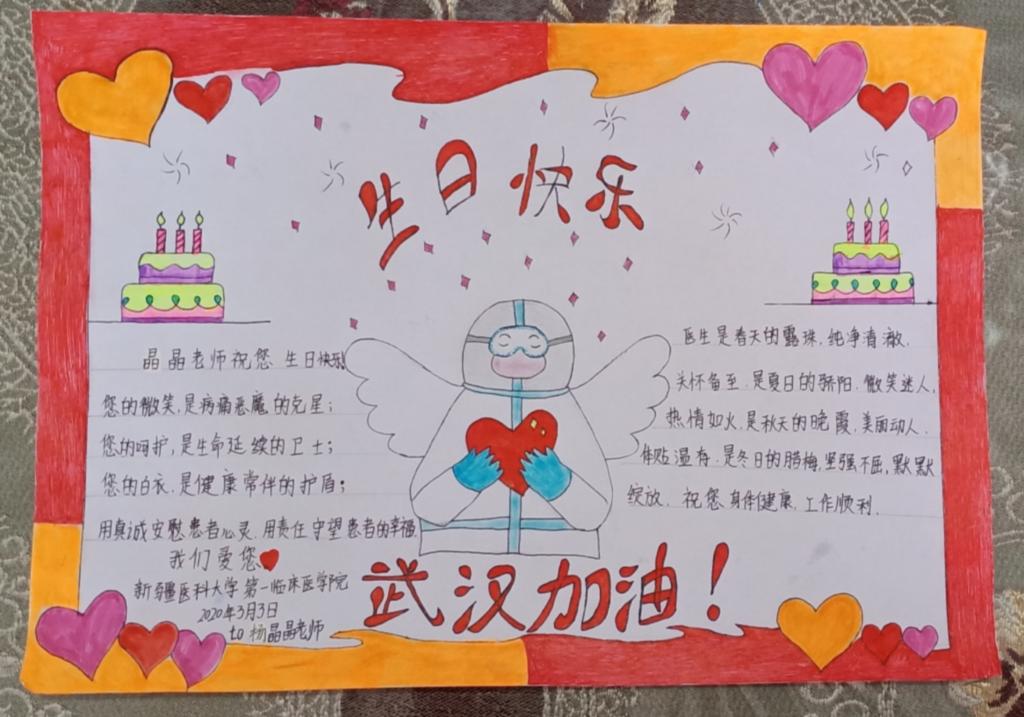 生日快乐
晶晶老师祝您 生日快乐
您的微笑,是病痛恶魔的克星;
您的呵护,是生命延续的卫士;
您的白衣,是健康常伴的护盾;
用真诚安慰患者心灵,用责任守望患者的幸福.
我们爱您
新疆医科大学第一临床医学院
2020年3月3日
to 杨晶晶老师
医生是春天的露珠,纯净清澈,
关怀备至,是夏日的骄阳,微笑迷人,
热情如火,是秋天的晚霞,美丽动人.
体贴温存,是冬日的腊梅,坚强不屈,默默
绽放. 祝您身体健康,工作顺利.
武汉加油!